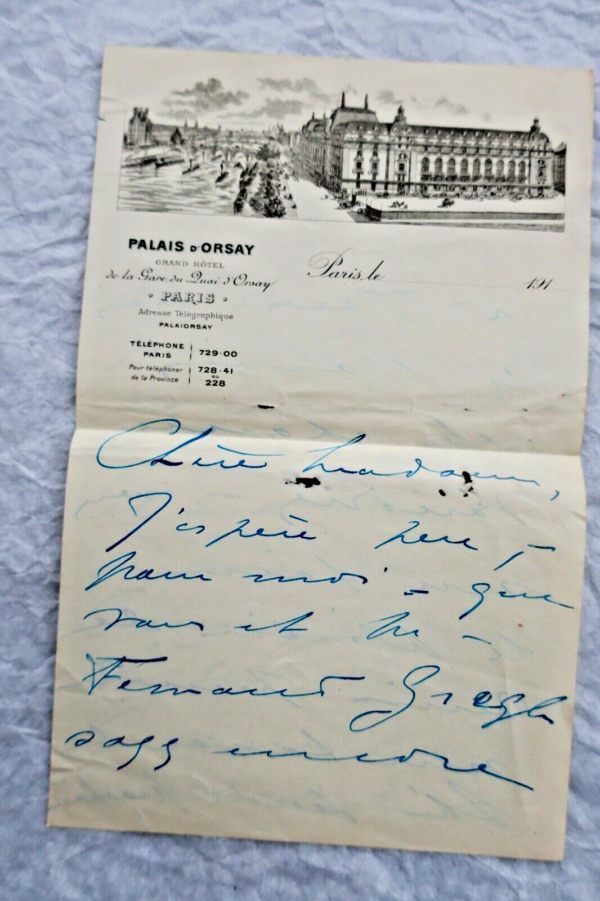 PALAIS D'ORSAY
GRAND HÔTEL
de la Gare du Quai d'Orsay
· PARIS ·
Adresse Télégraphique
PALAIORSAY
TÉLÉPHONE PARIS 729·00
Pour téléphoner de la Province 728·41 ou 228
Paris, le 191
Chère Madame,
J'espère peu, –
pour moi – que
vous et Mr –
Fernand Gregh
soyez encore